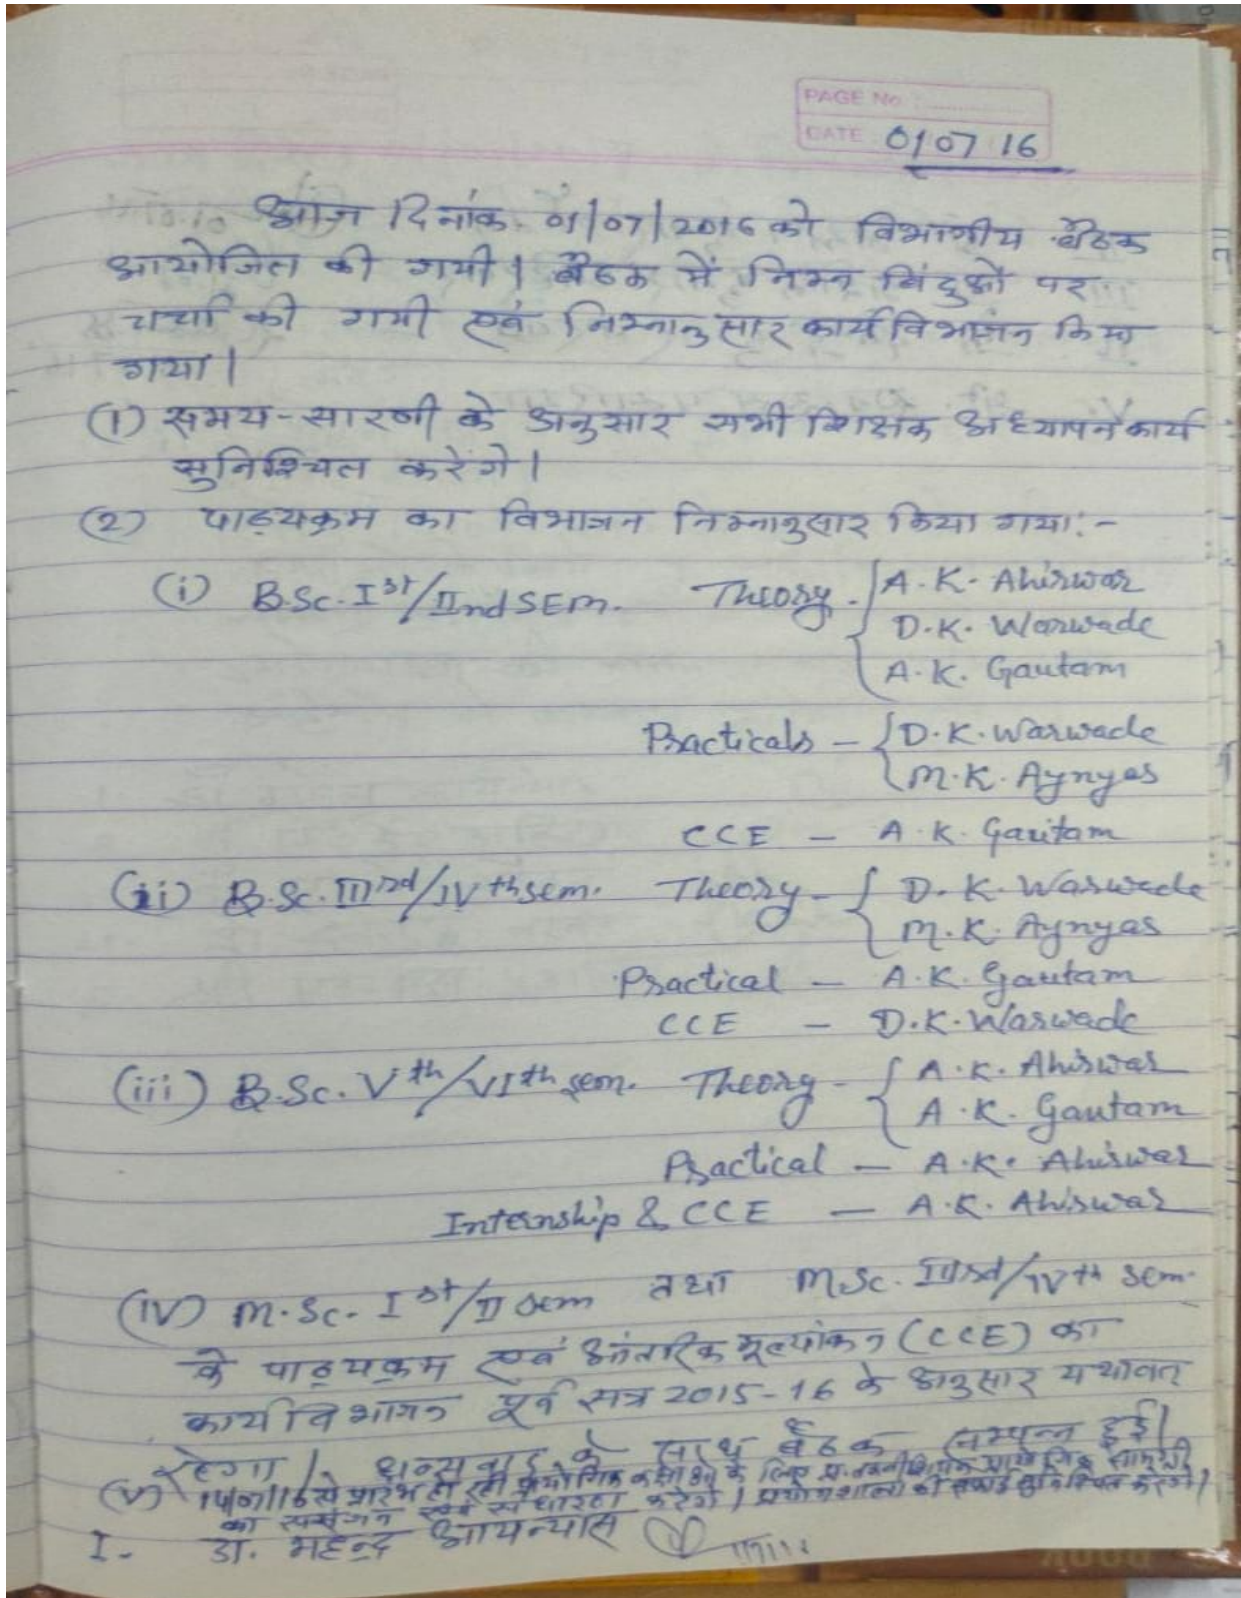 PAGE No.
DATE 01 07 16
आज दिनांक 01/07/2016 को विभागीय बैठक
आयोजित की गयी। बैठक में निम्न बिंदुओं पर
चर्चा की गयी एवं निम्नानुसार कार्य विभाजन किया
गया।
(1) समय-सारणी के अनुसार सभी शिक्षक अध्यापन कार्य
सुनिश्चित करेंगे।
(2) पाठ्यक्रम का विभाजन निम्नानुसार किया गया:-
(i) B.Sc. Ist/IInd SEM. Theory - A.K. Ahirwar
D.K. Warwade
A.K. Gautam
Practicals - D.K. Warwade
M.K. Aynyas
CCE - A.K. Gautam
(ii) B.Sc. IIIrd/IVth sem. Theory - D.K. Warwade
M.K. Aynyas
Practical - A.K. Gautam
CCE - D.K. Warwade
(iii) B.Sc. Vth/VIth sem. Theory - A.K. Ahirwar
A.K. Gautam
Practical - A.K. Ahirwar
Internship & CCE - A.K. Ahirwar
(IV) M.Sc. Ist/II sem तथा M.Sc. IIIrd/IVth sem.
के पाठ्यक्रम एवं आंतरिक मूल्यांकन (CCE) का
कार्य विभाजन पूर्व सत्र 2015-16 के अनुसार यथावत
रहेगा। धन्यवाद के साथ बैठक सम्पन्न हुई।
(V) से प्रारंभ हो रही प्रायोगिक कक्षाओं के लिए सामग्री
का एवं करेंगे। प्रयोगशाला की सफाई सुनिश्चित करेंगे।
I- डा. महेन्द्र आयन्यास